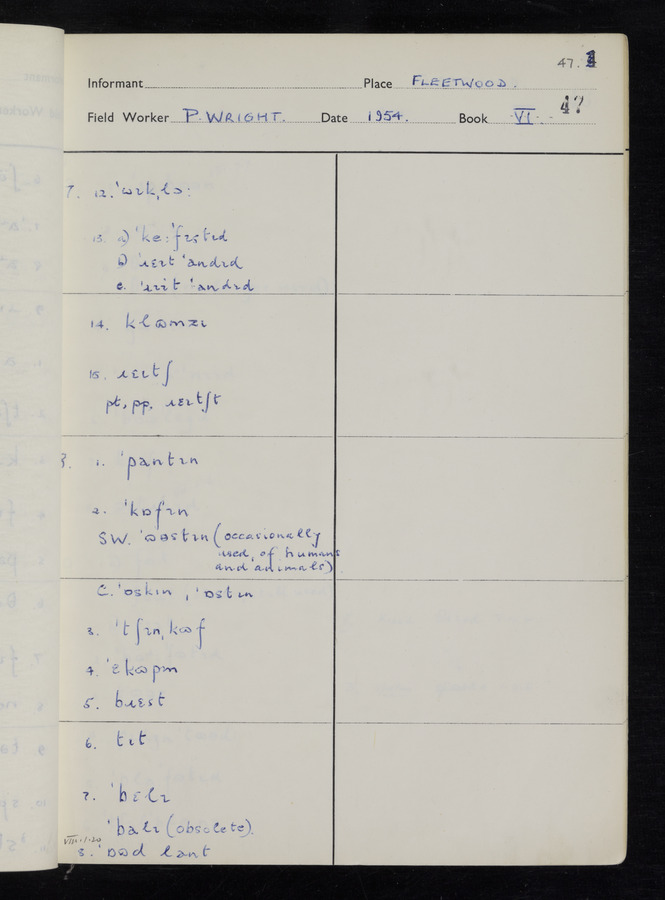 47. 3
Informant Place FLEETWOOD.
47
Field Worker P. WRIGHT. Date 1954. Book VI.
7. 12. 'ɷɪk,lɔ:
13. a) 'kɛ:fɪstɪd
b) 'ɹɛɪt 'andɪd
c. 'ɹɪit 'andɪd
14. klɷmzɪ
15. ɹɛɪtʃ
pt, pp. ɹɛɪtʃt
8. 1. 'pantɪn
2. 'kɒfɪn
SW. 'ɷəstɪn (occasionally
used, of humans
and animals)
C. 'ɒskɪn , 'ɒstɪn
3. 'tʃɪn,kɷf
4. 'ɛkɷpm
5. bɹɛst
6. tɪt
7. 'bɛlɪ
'balɪ (obsolete).
VIII.1.20
8. 'ɒɷd lant